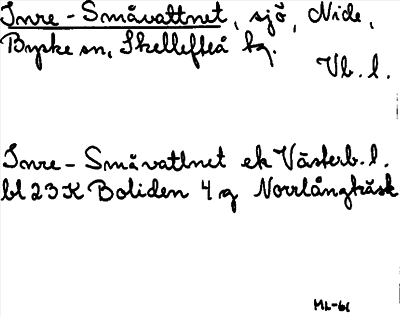 Inre-Småvattnet, sjö, Nide,
Byske sn, Skellefteå tg.
Vb. l.
Inre-Småvattnet ek Västerb. l.
bl 23 K Boliden 4 g Norrlångträsk
ML-61